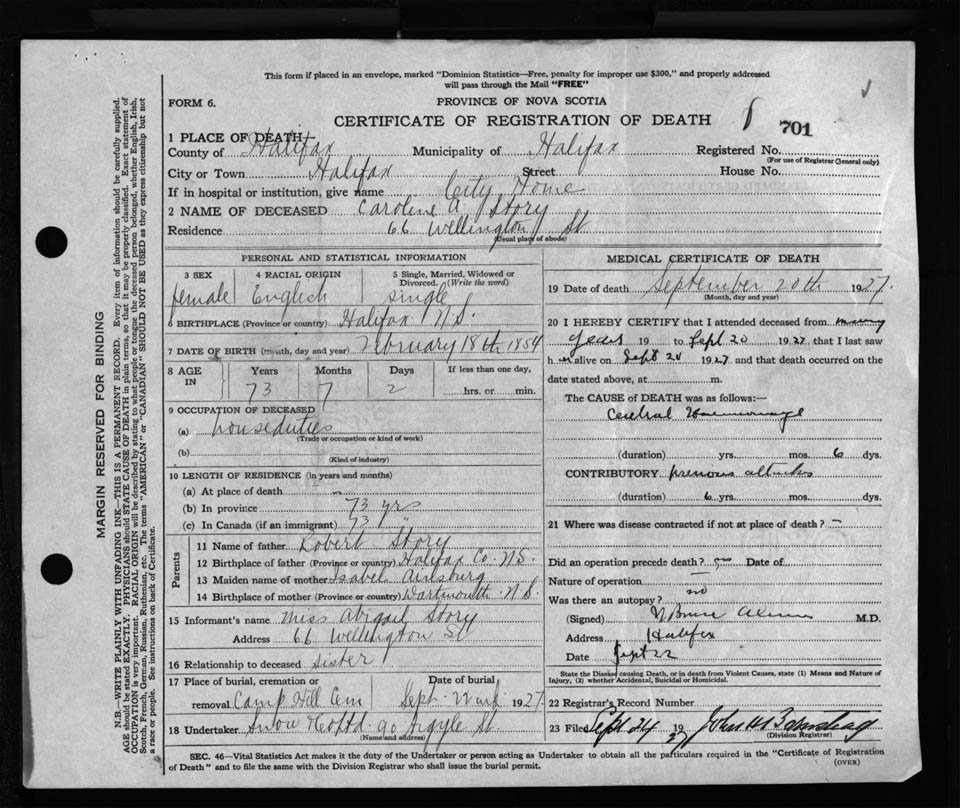 This form if placed in an envelope, marked "Dominion Statistics—Free, penalty for improper use $300," and properly addressed
will pass through the Mail "FREE"
FORM 6.
PROVINCE OF NOVA SCOTIA
CERTIFICATE OF REGISTRATION OF DEATH
701
1 PLACE OF DEATH
County of Halifax Municipality of Halifax Registered No.
(For use of Registrar General only)
City or Town Halifax Street House No.
If in hospital or institution, give name City Home
2 NAME OF DECEASED Caroline A Story
Residence 66 Wellington St
(Usual place of abode)
PERSONAL AND STATISTICAL INFORMATION
3 SEX 4 RACIAL ORIGIN 5 Single, Married, Widowed or
Divorced. (Write the word)
female English single
6 BIRTHPLACE (Province or country) Halifax N.S.
7 DATE OF BIRTH (month, day and year) February 18th 1854
8 AGE IN Years Months Days If less than one day,
73 7 2 hrs. or min.
9 OCCUPATION OF DECEASED
(a) houseduties
(Trade or occupation or kind of work)
(b)
(Kind of industry)
10 LENGTH OF RESIDENCE (in years and months)
(a) At place of death
(b) In province 73 yrs
(c) In Canada (if an immigrant) 73 "
Parents
11 Name of father Robert Story
12 Birthplace of father (Province or country) Halifax Co. N.S.
13 Maiden name of mother Isabel
14 Birthplace of mother (Province or country) Dartmouth N.S.
15 Informant's name Miss Abigail Story
Address 66 Wellington St
16 Relationship to deceased sister
17 Place of burial, cremation or Date of burial
removal Camp Hill Cem Sept. 1927
18 Undertaker Snow 90 Argyle St
(Name and address)
MEDICAL CERTIFICATE OF DEATH
19 Date of death September 20th 1927.
(Month, day and year)
20 I HEREBY CERTIFY that I attended deceased from many
years 19 to Sept 20 1927 that I last saw
her alive on Sept 20 1927 and that death occurred on the
date stated above, at m.
The CAUSE OF DEATH was as follows:—
Cerebral Haemorrhage
(duration) yrs. mos. 6 dys.
CONTRIBUTORY previous attacks
(duration) 6 yrs. mos. dys.
21 Where was disease contracted if not at place of death? —
Did an operation precede death? no Date of
Nature of operation —
Was there an autopsy? no
(Signed) M.D.
Address Halifax
Date Sept 22
State the Disease Causing Death, or in death from Violent Causes, state (1) Means and Nature of
Injury, (2) whether Accidental, Suicidal or Homicidal.
22 Registrar's Record Number
23 Filed Sept 24 1927 John
(Division Registrar)
SEC. 46—Vital Statistics Act makes it the duty of the Undertaker or person acting as Undertaker to obtain all the particulars required in the "Certificate of Registration
of Death" and to file the same with the Division Registrar who shall issue the burial permit.
(OVER)
MARGIN RESERVED FOR BINDING
N.B.—WRITE PLAINLY WITH UNFADING INK—THIS IS A PERMANENT RECORD. Every item of information should be carefully supplied.
AGE should be stated EXACTLY. PHYSICIANS should STATE CAUSE OF DEATH in plain terms, so that it may be properly classified. Exact statement of
OCCUPATION is very important. RACIAL ORIGIN will be described by stating to what people or tongue the deceased person belonged, whether English, Irish,
Scotch, French, German, Russian, Ruthenian, etc. The terms "AMERICAN" or "CANADIAN" SHOULD NOT BE USED as they express citizenship but not
a race or people. See instructions on back of Certificate.